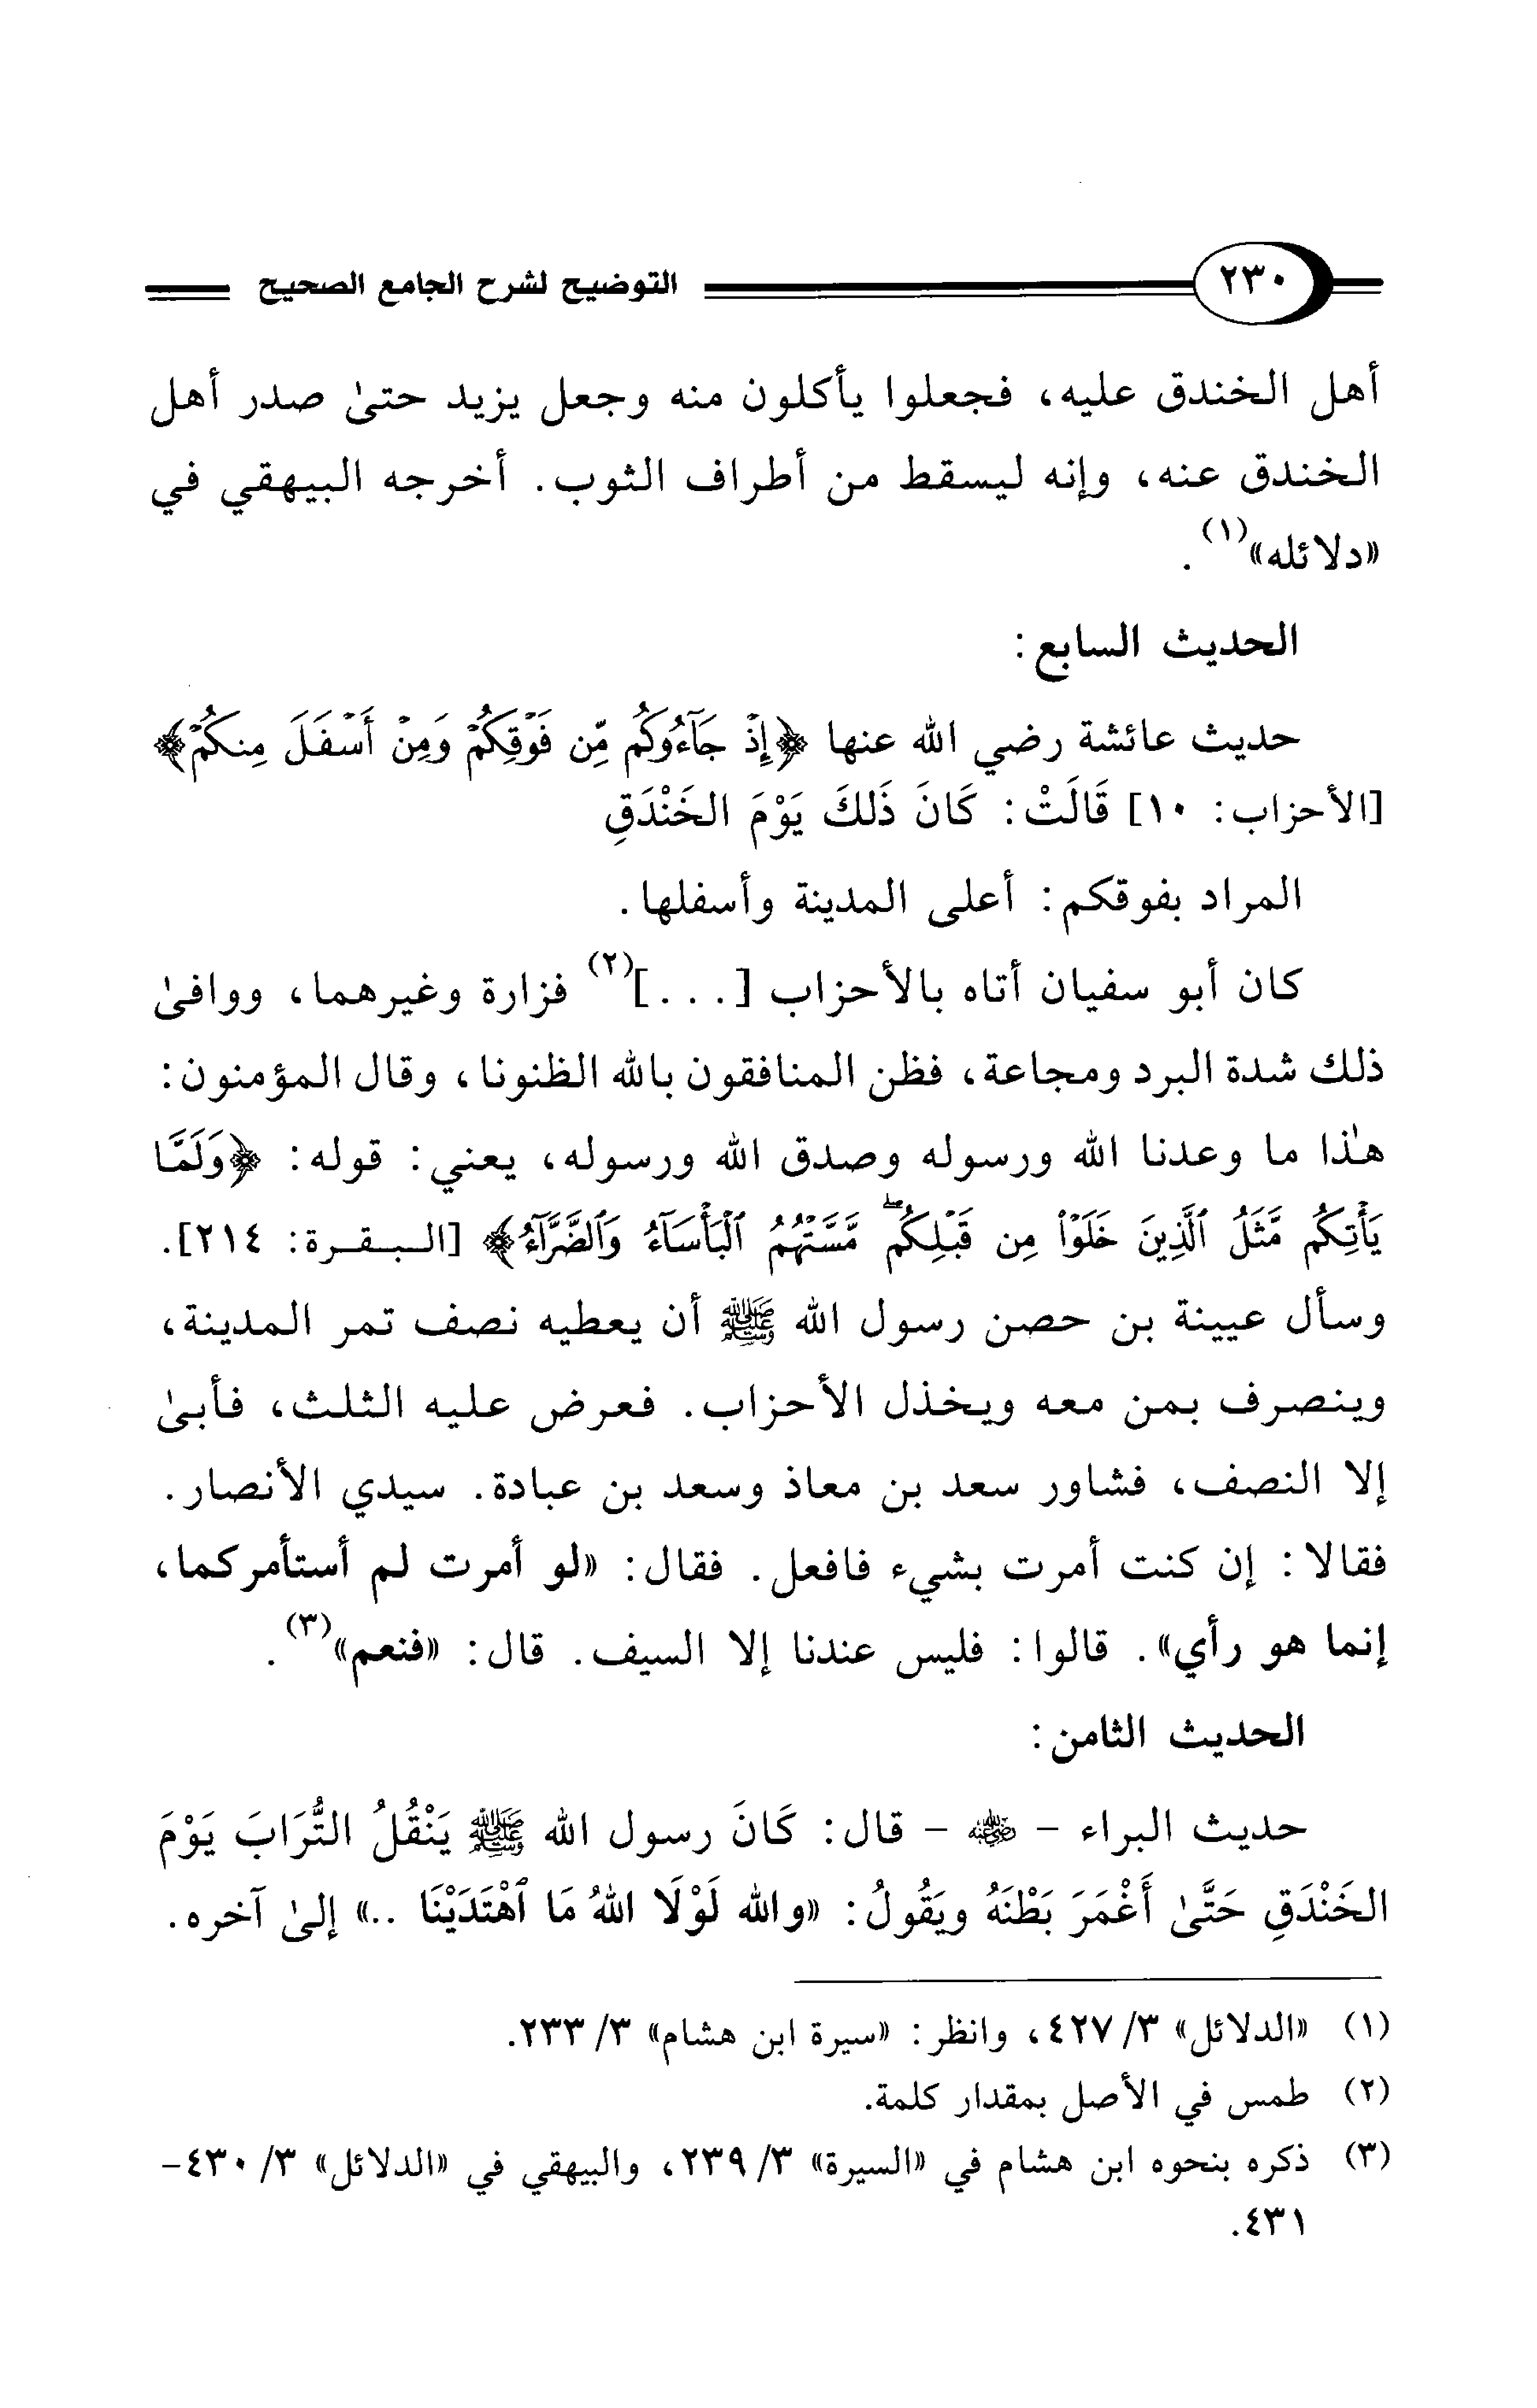 ٢٣٠ التوضيح لشرح الجامع الصحيح
أهل الخندق عليه، فجعلوا يأكلون منه وجعل يزيد حتىٰ صدر أهل
الخندق عنه، وإنه ليسقط من أطراف الثوب. أخرجه البيهقي في
«دلائله»(١).
الحديث السابع:
حديث عائشة رضي الله عنها ﴿إِذْ جَآءُوكُم مِّن فَوْقِكُمْ وَمِنْ أَسْفَلَ مِنكُمْ﴾
[الأحزاب: ١٠] قَالَتْ: كَانَ ذَلكَ يَوْمَ الخَنْدَقِ
المراد بفوقكم: أعلى المدينة وأسفلها.
كان أبو سفيان أتاه بالأحزاب [...](٢) فزارة وغيرهما، ووافىٰ
ذلك شدة البرد ومجاعة، فظن المنافقون بالله الظنونا، وقال المؤمنون:
هذا ما وعدنا الله ورسوله وصدق الله ورسوله، يعني: قوله: ﴿وَلَمَّا
يَأْتِكُم مَّثَلُ ٱلَّذِينَ خَلَوْا۟ مِن قَبْلِكُم ۖ مَّسَّتْهُمُ ٱلْبَأْسَآءُ وَٱلضَّرَّآءُ﴾ [البقرة: ٢١٤].
وسأل عيينة بن حصن رسول الله ﷺ أن يعطيه نصف تمر المدينة،
وينصرف بمن معه ويخذل الأحزاب. فعرض عليه الثلث، فأبىٰ
إلا النصف، فشاور سعد بن معاذ وسعد بن عبادة. سيدي الأنصار.
فقالا: إن كنت أمرت بشيء فافعل. فقال: «لو أمرت لم أستأمركما،
إنما هو رأي». قالوا: فليس عندنا إلا السيف. قال: «فنعم»(٣).
الحديث الثامن:
حديث البراء - رضي الله عنه - قال: كَانَ رسول الله ﷺ يَنْقُلُ التُّرَابَ يَوْمَ
الخَنْدَقِ حَتَّىٰ أَغْمَرَ بَطْنَهُ ويَقُولُ: «والله لَوْلَا اللهُ مَا ٱهْتَدَيْنَا ..» إلىٰ آخره.
(١) «الدلائل» ٣/ ٤٢٧، وانظر: «سيرة ابن هشام» ٣/ ٢٣٣.
(٢) طمس في الأصل بمقدار كلمة.
(٣) ذكره بنحوه ابن هشام في «السيرة» ٣/ ٢٣٩، والبيهقي في «الدلائل» ٣/ ٤٣٠-
٤٣١.